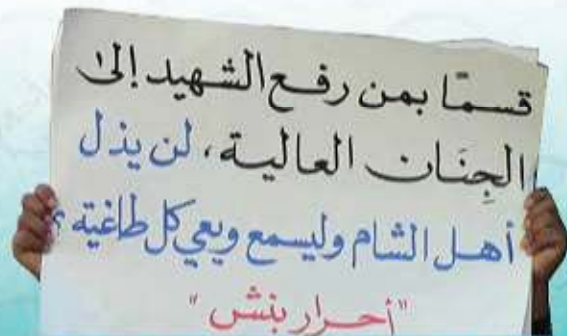 قسمًا بمن رفع الشهيد إلى
الجِنَان العالية، لن يذل
أهل الشام وليسمع ويعي كل طاغية؟
"أحرار بنش"